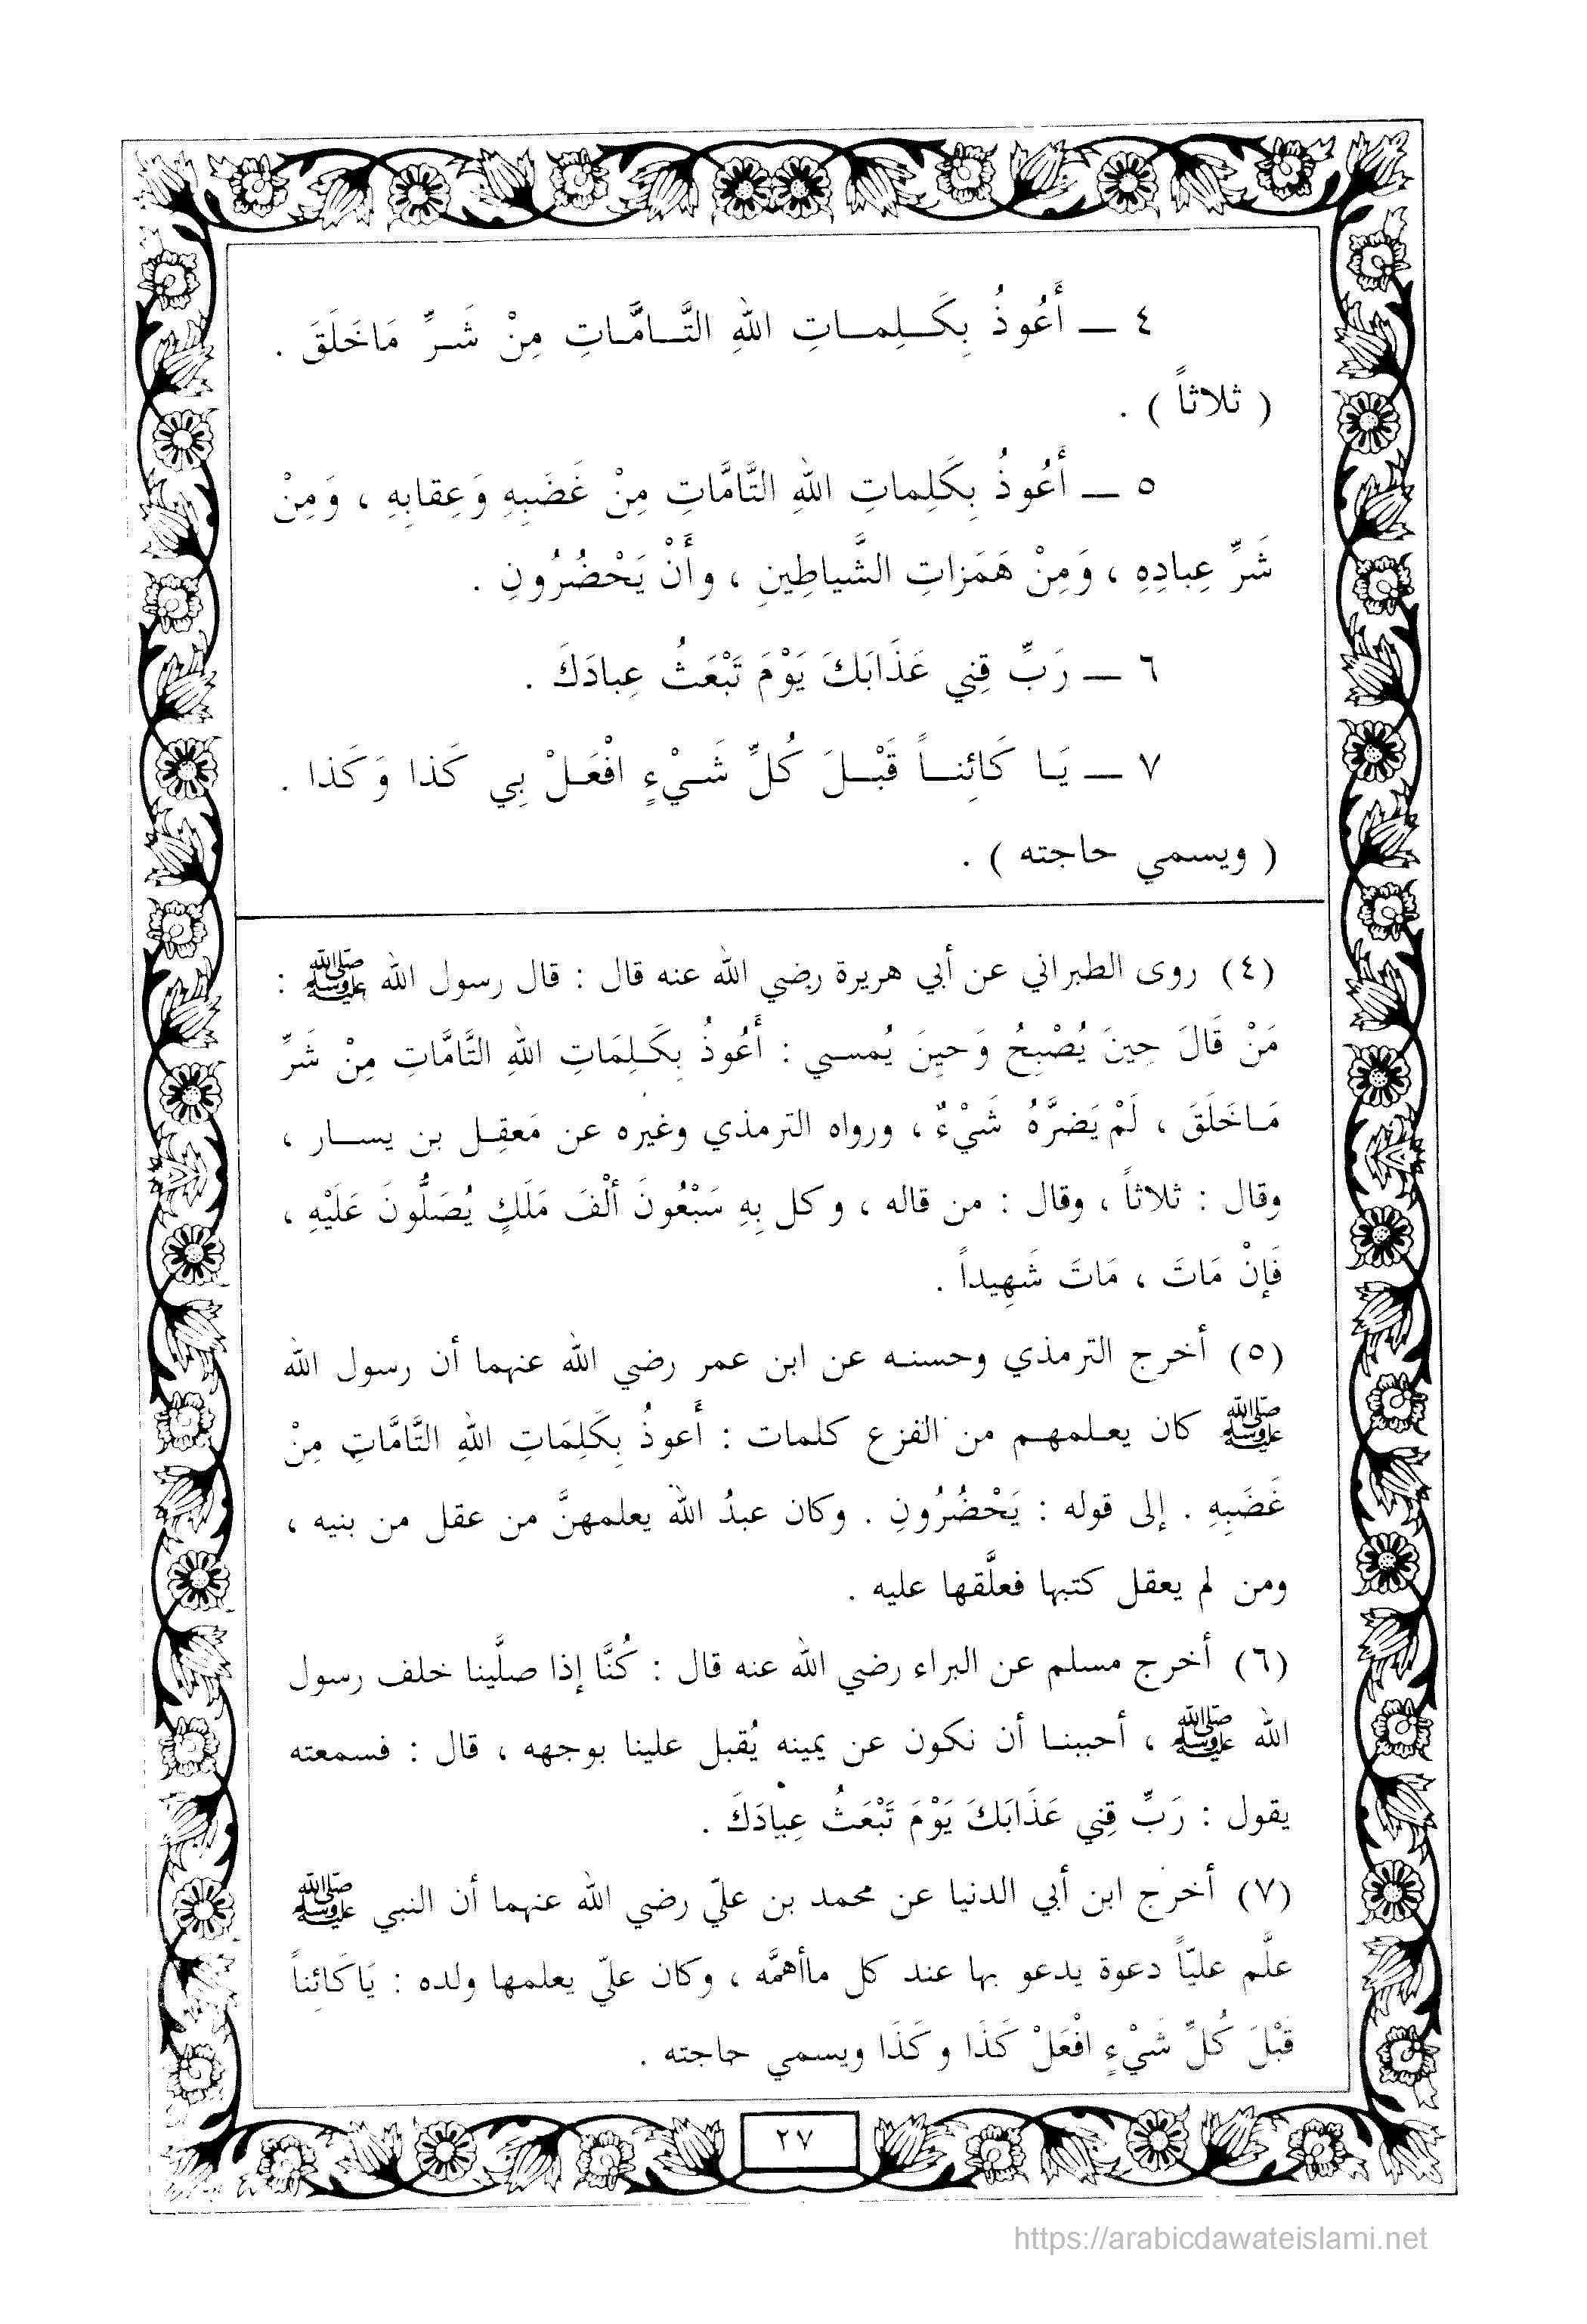 ٤ ــ أَعُوذُ بِكَلِمَاتِ اللهِ التَّامَّاتِ مِنْ شَرِّ مَاخَلَقَ .
( ثلاثاً ) .
٥ ــ أَعُوذُ بِكَلِماتِ اللهِ التَّامَّاتِ مِنْ غَضَبِهِ وَعِقابِهِ ، وَمِنْ
شَرِّ عِبادِهِ ، وَمِنْ هَمَزاتِ الشَّياطِينِ ، وأَنْ يَحْضُرُونِ .
٦ ــ رَبِّ قِنِي عَذَابَكَ يَوْمَ تَبْعَثُ عِبادَكَ .
٧ ــ يَا كَائِناً قَبْلَ كُلِّ شَيْءٍ افْعَلْ بِي كَذا وَكَذا .
( ويسمي حاجته ) .
(٤) روى الطبراني عن أبي هريرة رضي الله عنه قال : قال رسول الله ﷺ :
مَنْ قَالَ حِينَ يُصْبِحُ وَحِينَ يُمسي : أَعُوذُ بِكَلِمَاتِ اللهِ التَّامَّاتِ مِنْ شَرِّ
مَاخَلَقَ ، لَمْ يَضرَّهُ شَيْءٌ ، ورواه الترمذي وغيره عن مَعقِل بن يسار ،
وقال : ثلاثاً ، وقال : من قاله ، وكل بِهِ سَبْعُونَ ألْفَ مَلَكٍ يُصَلُّونَ عَلَيْهِ ،
فَإنْ مَاتَ ، مَاتَ شَهِيداً .
(٥) أخرج الترمذي وحسنه عن ابن عمر رضي الله عنهما أن رسول الله
ﷺ كان يعلمهم من الفزع كلمات : أَعوذُ بِكَلِمَاتِ اللهِ التَّامَّاتِ مِنْ
غَضَبِهِ . إلى قوله : يَحْضُرُونِ . وكان عبدُ الله يعلمهنَّ من عقل من بنيه ،
ومن لم يعقل كتبها فعلَّقها عليه .
(٦) أخرج مسلم عن البراء رضي الله عنه قال : كُنَّا إذا صلَّينا خلف رسول
الله ﷺ ، أحببنا أن نكون عن يمينه يُقبل علينا بوجهه ، قال : فسمعته
يقول : رَبِّ قِنِي عَذَابَكَ يَوْمَ تَبْعَثُ عِبادَكَ .
(٧) أخرج ابن أبي الدنيا عن محمد بن عليّ رضي الله عنهما أن النبي ﷺ
علَّم عليّاً دعوة يدعو بها عند كل ماأهمَّه ، وكان عليّ يعلمها ولده : يَاكَائِناً
قَبْلَ كُلِّ شَيْءٍ افْعَلْ كَذَا وكَذَا ويسمي حاجته .
٢٧
https://arabicdawateislami.net